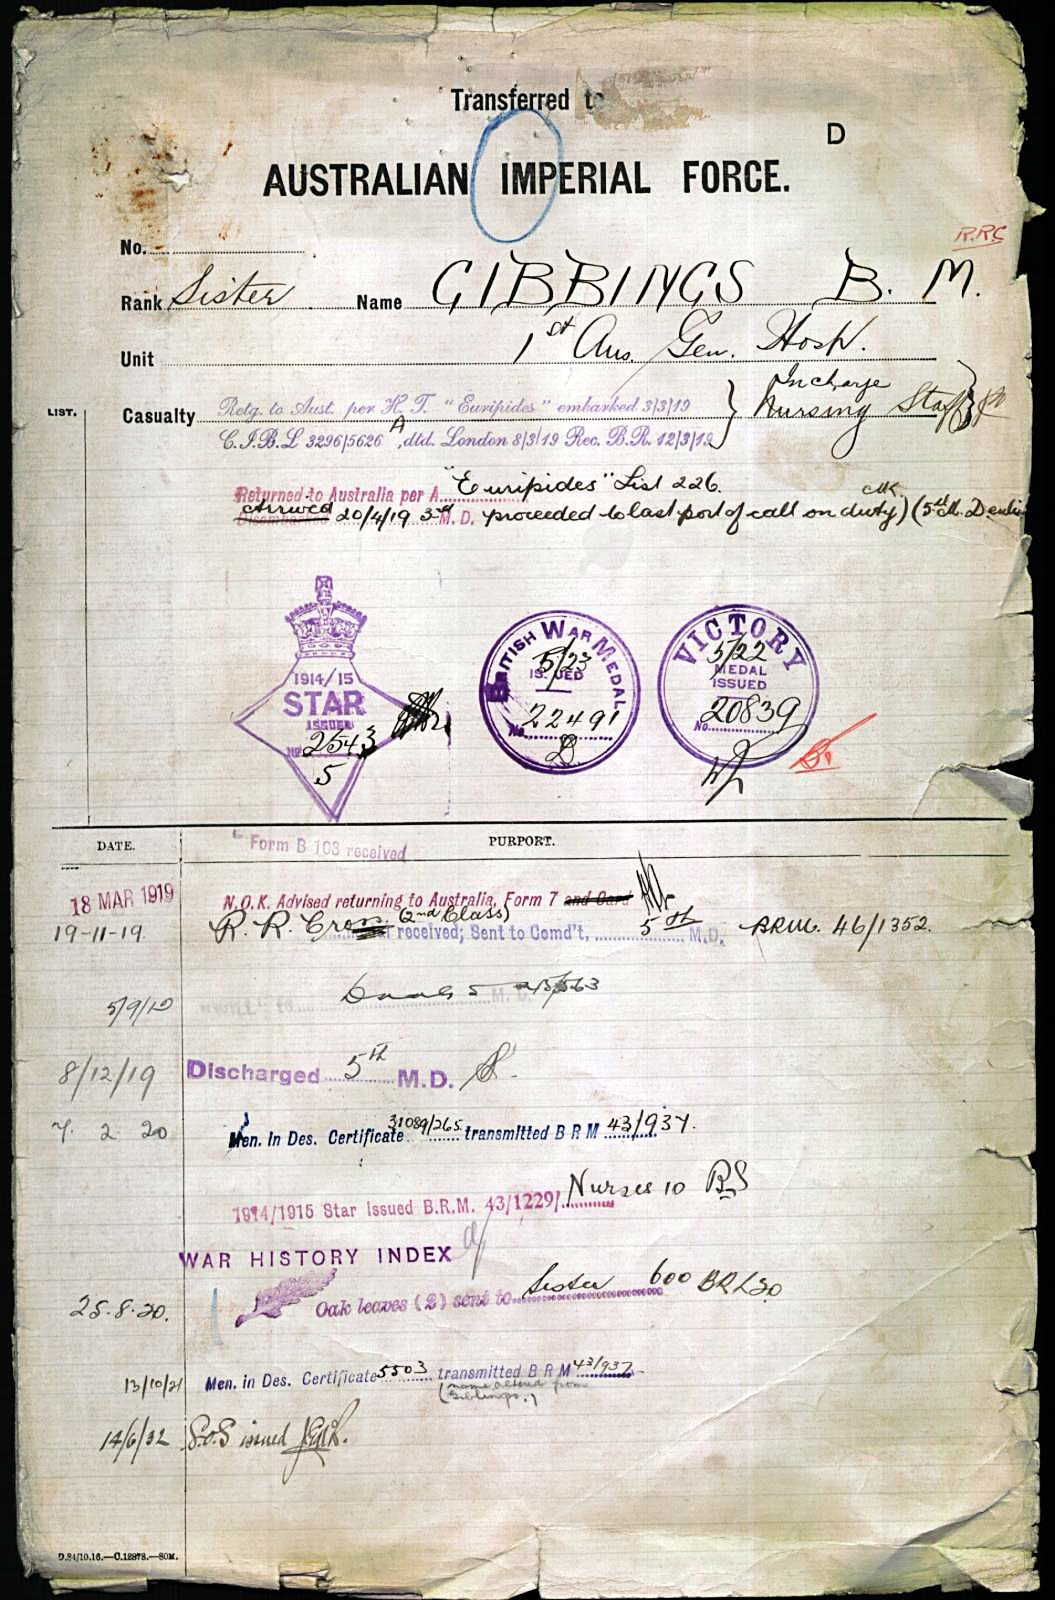 Transferred to
D
AUSTRALIAN IMPERIAL FORCE.
R.R.C
No.
Rank Sister Name GIBBINGS B. M.
Unit 1st Aus. Gen. Hosp.
LIST.
Casualty Retg. to Aust. per H.T. "Euripides" embarked 3/3/19 } In charge
C.I.B.L 3296/5626 A, dtd. London 8/3/19 Rec. B.R. 12/3/19 } Nursing Staff
Returned to Australia per A "Euripides" List 226.
Arrived Disembarked 20/4/19 3rd M.D. proceeded to last port of call on duty) (5th M.D.
1914/15
STAR
ISSUED
No. 2543
5
BRITISH WAR MEDAL
5/23
ISSUED
No. 22491
VICTORY
5/22
MEDAL
ISSUED
No. 20839
DATE. PURPORT.
Form B 103 received
18 MAR 1919 N.O.K. Advised returning to Australia, Form 7 and Card
19-11-19. R. R. Cross (2nd Class) received; Sent to Comd't, 5th M.D. BRM. 46/1352.
5/9/19 M.D.
8/12/19 Discharged 5th M.D.
7. 2. 20 Men. in Des. Certificate 31089/265 transmitted B R M 43/937.
1914/1915 Star issued B.R.M. 43/1229/ Nurses 10
WAR HISTORY INDEX
25.8.20. Oak leaves (2) sent to Sister 600
13/10/21 Men. in Des. Certificate 5503 transmitted B R M 43/937
(name altered from
Giblings.)
14/6/32 S.O.S issued
D.84/10.16.—C.12878.—80M.